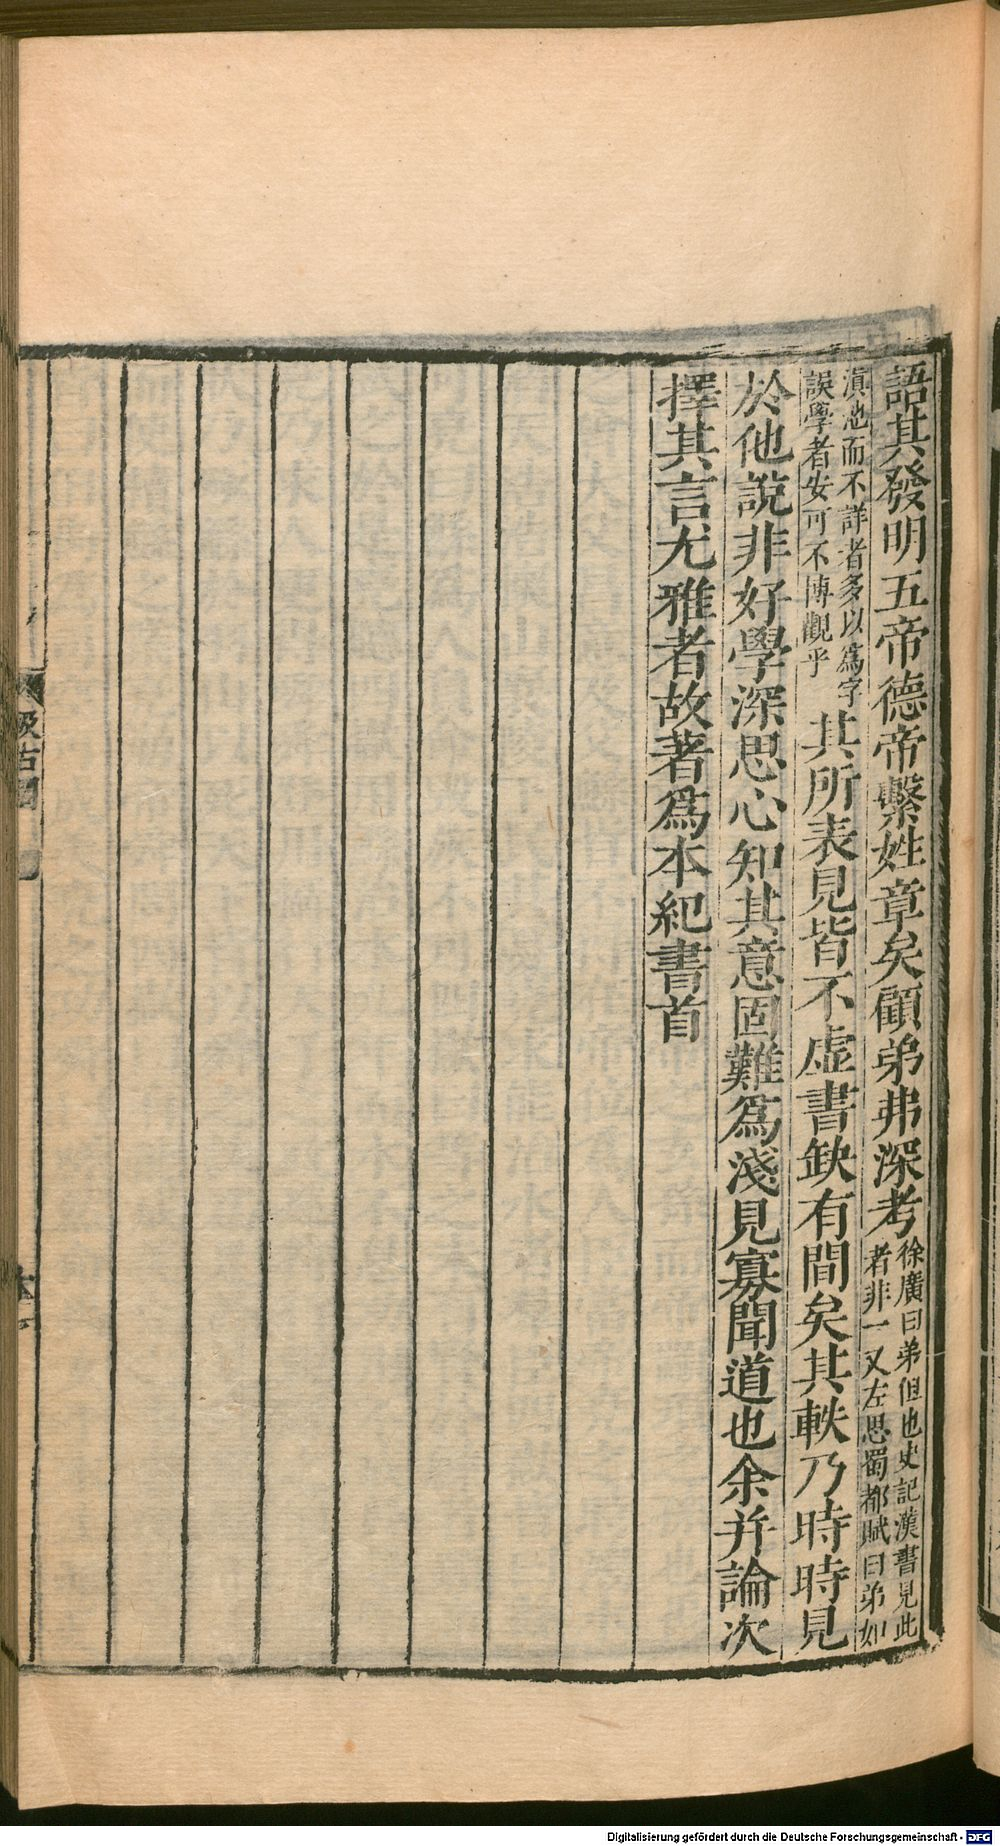 語其發明五帝德帝繫姓章矣顧弟弗深考徐廣曰弟但也史記漢書見此者非一又左思蜀都賦曰弟如
滇池而不詳者多以爲字誤學者安可不博觀乎其所表見皆不虛書缺有間矣其軼乃時時見
於他說非好學深思心知其意固難爲淺見寡聞道也余并論次
擇其言尤雅者故著爲本紀書首
汲古閣
Digitalisierung gefördert durch die Deutsche Forschungsgemeinschaft - DFG